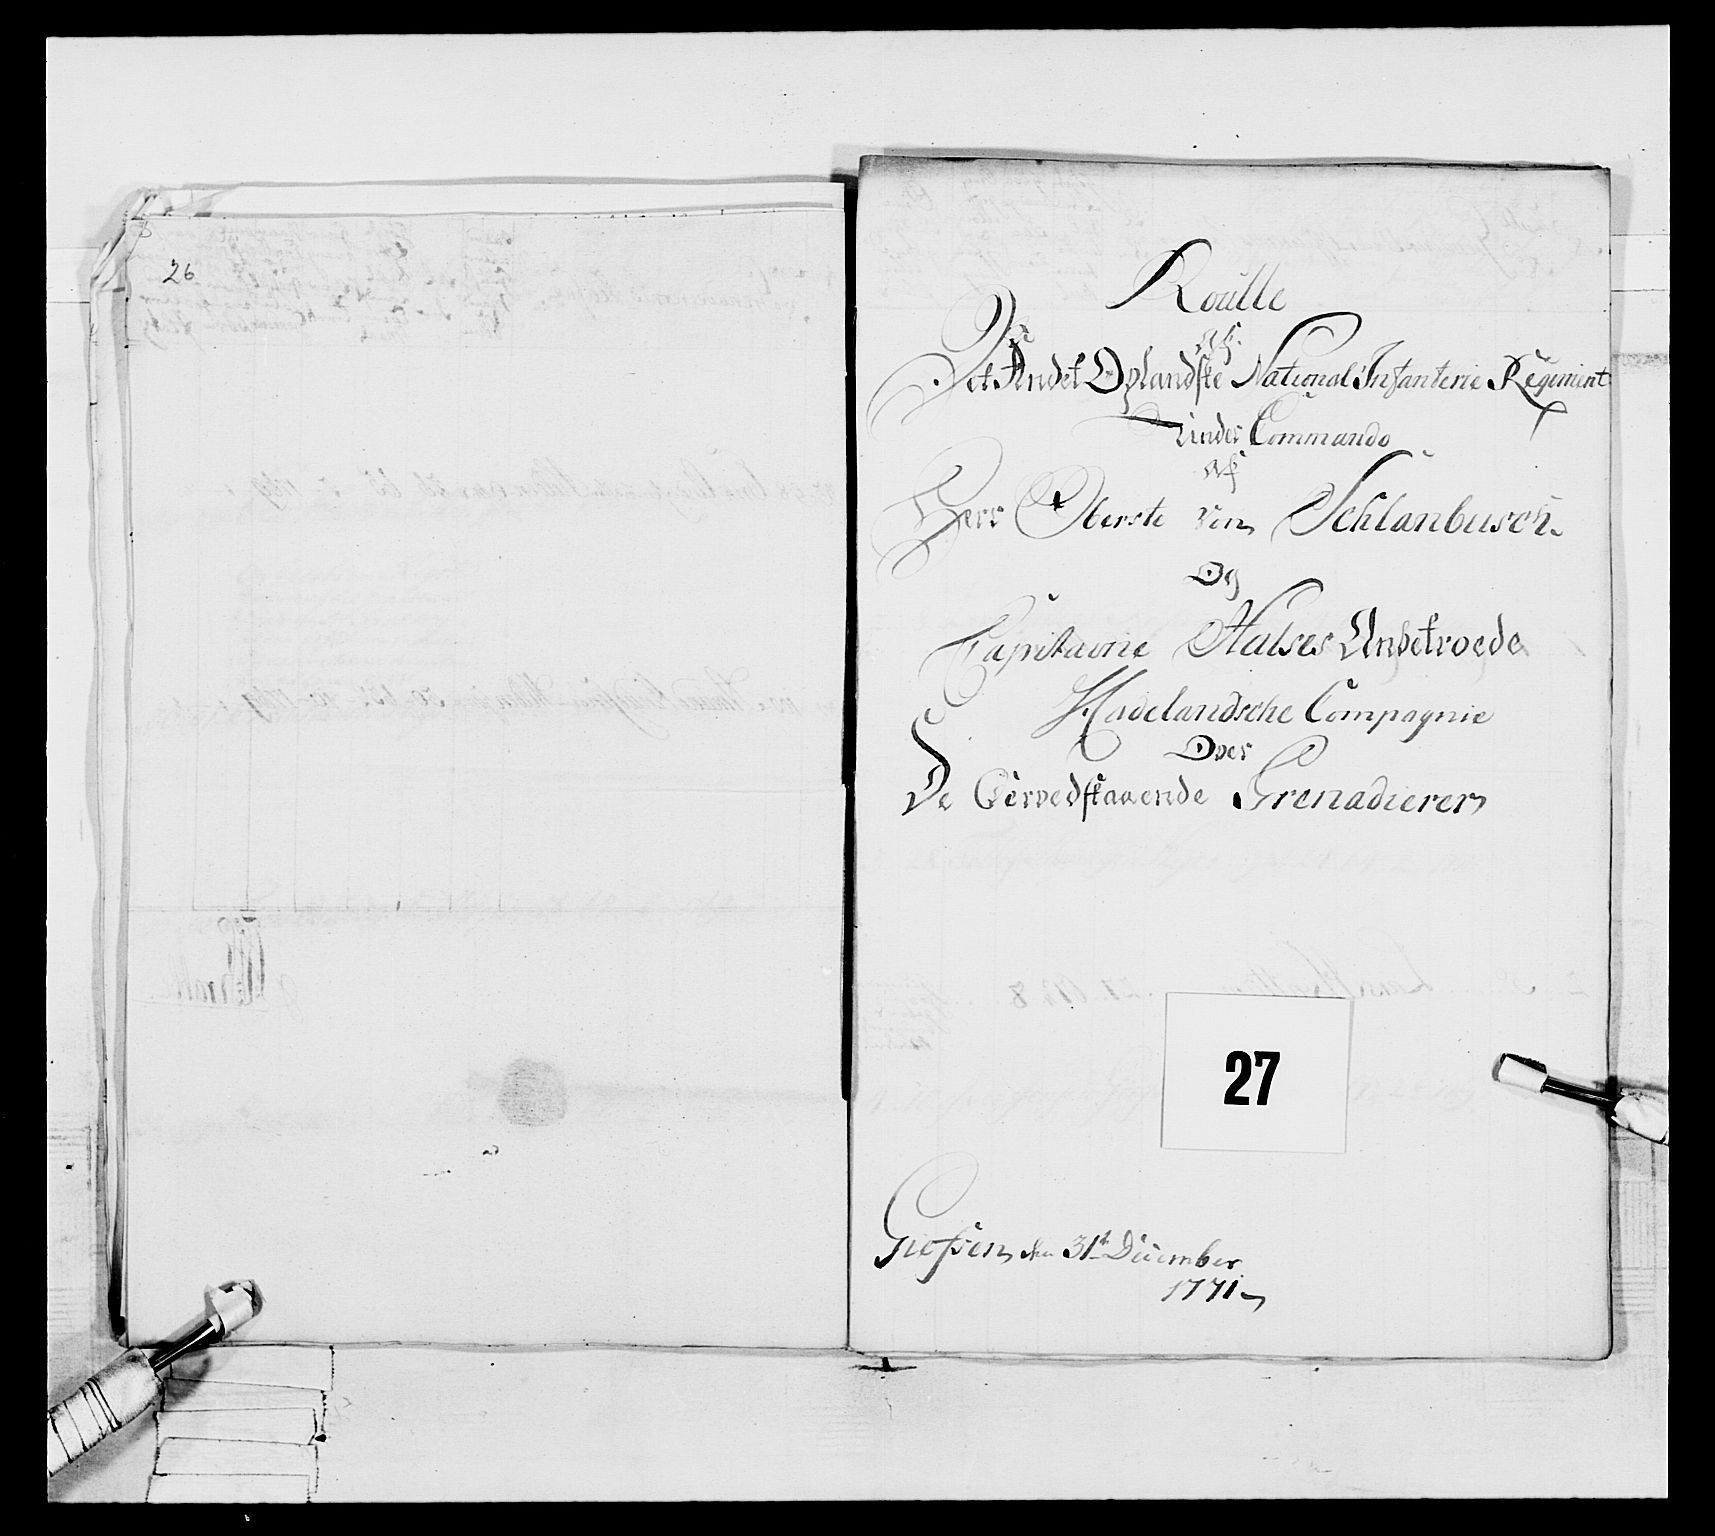 26
Roulle
af
Det Andet Oplandske National Infanterie Regiment
under Commando
af
Herr Oberste von Schlanbusch.
Og
Capitaine Halses Anbetroede
Hadelandsche Compagnie
Over
De Gevedstaaende Grenadierer
27
Gießen den 31t December
1771